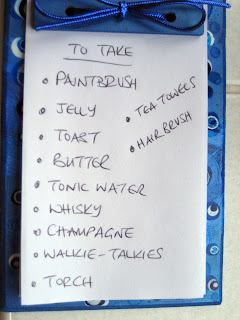 TO TAKE
• PAINTBRUSH
• JELLY
• TOAST
• BUTTER
• TONIC WATER
• WHISKY
• CHAMPAGNE
• WALKIE-TALKIES
• TORCH
• TEA TOWELS
• HAIRBRUSH